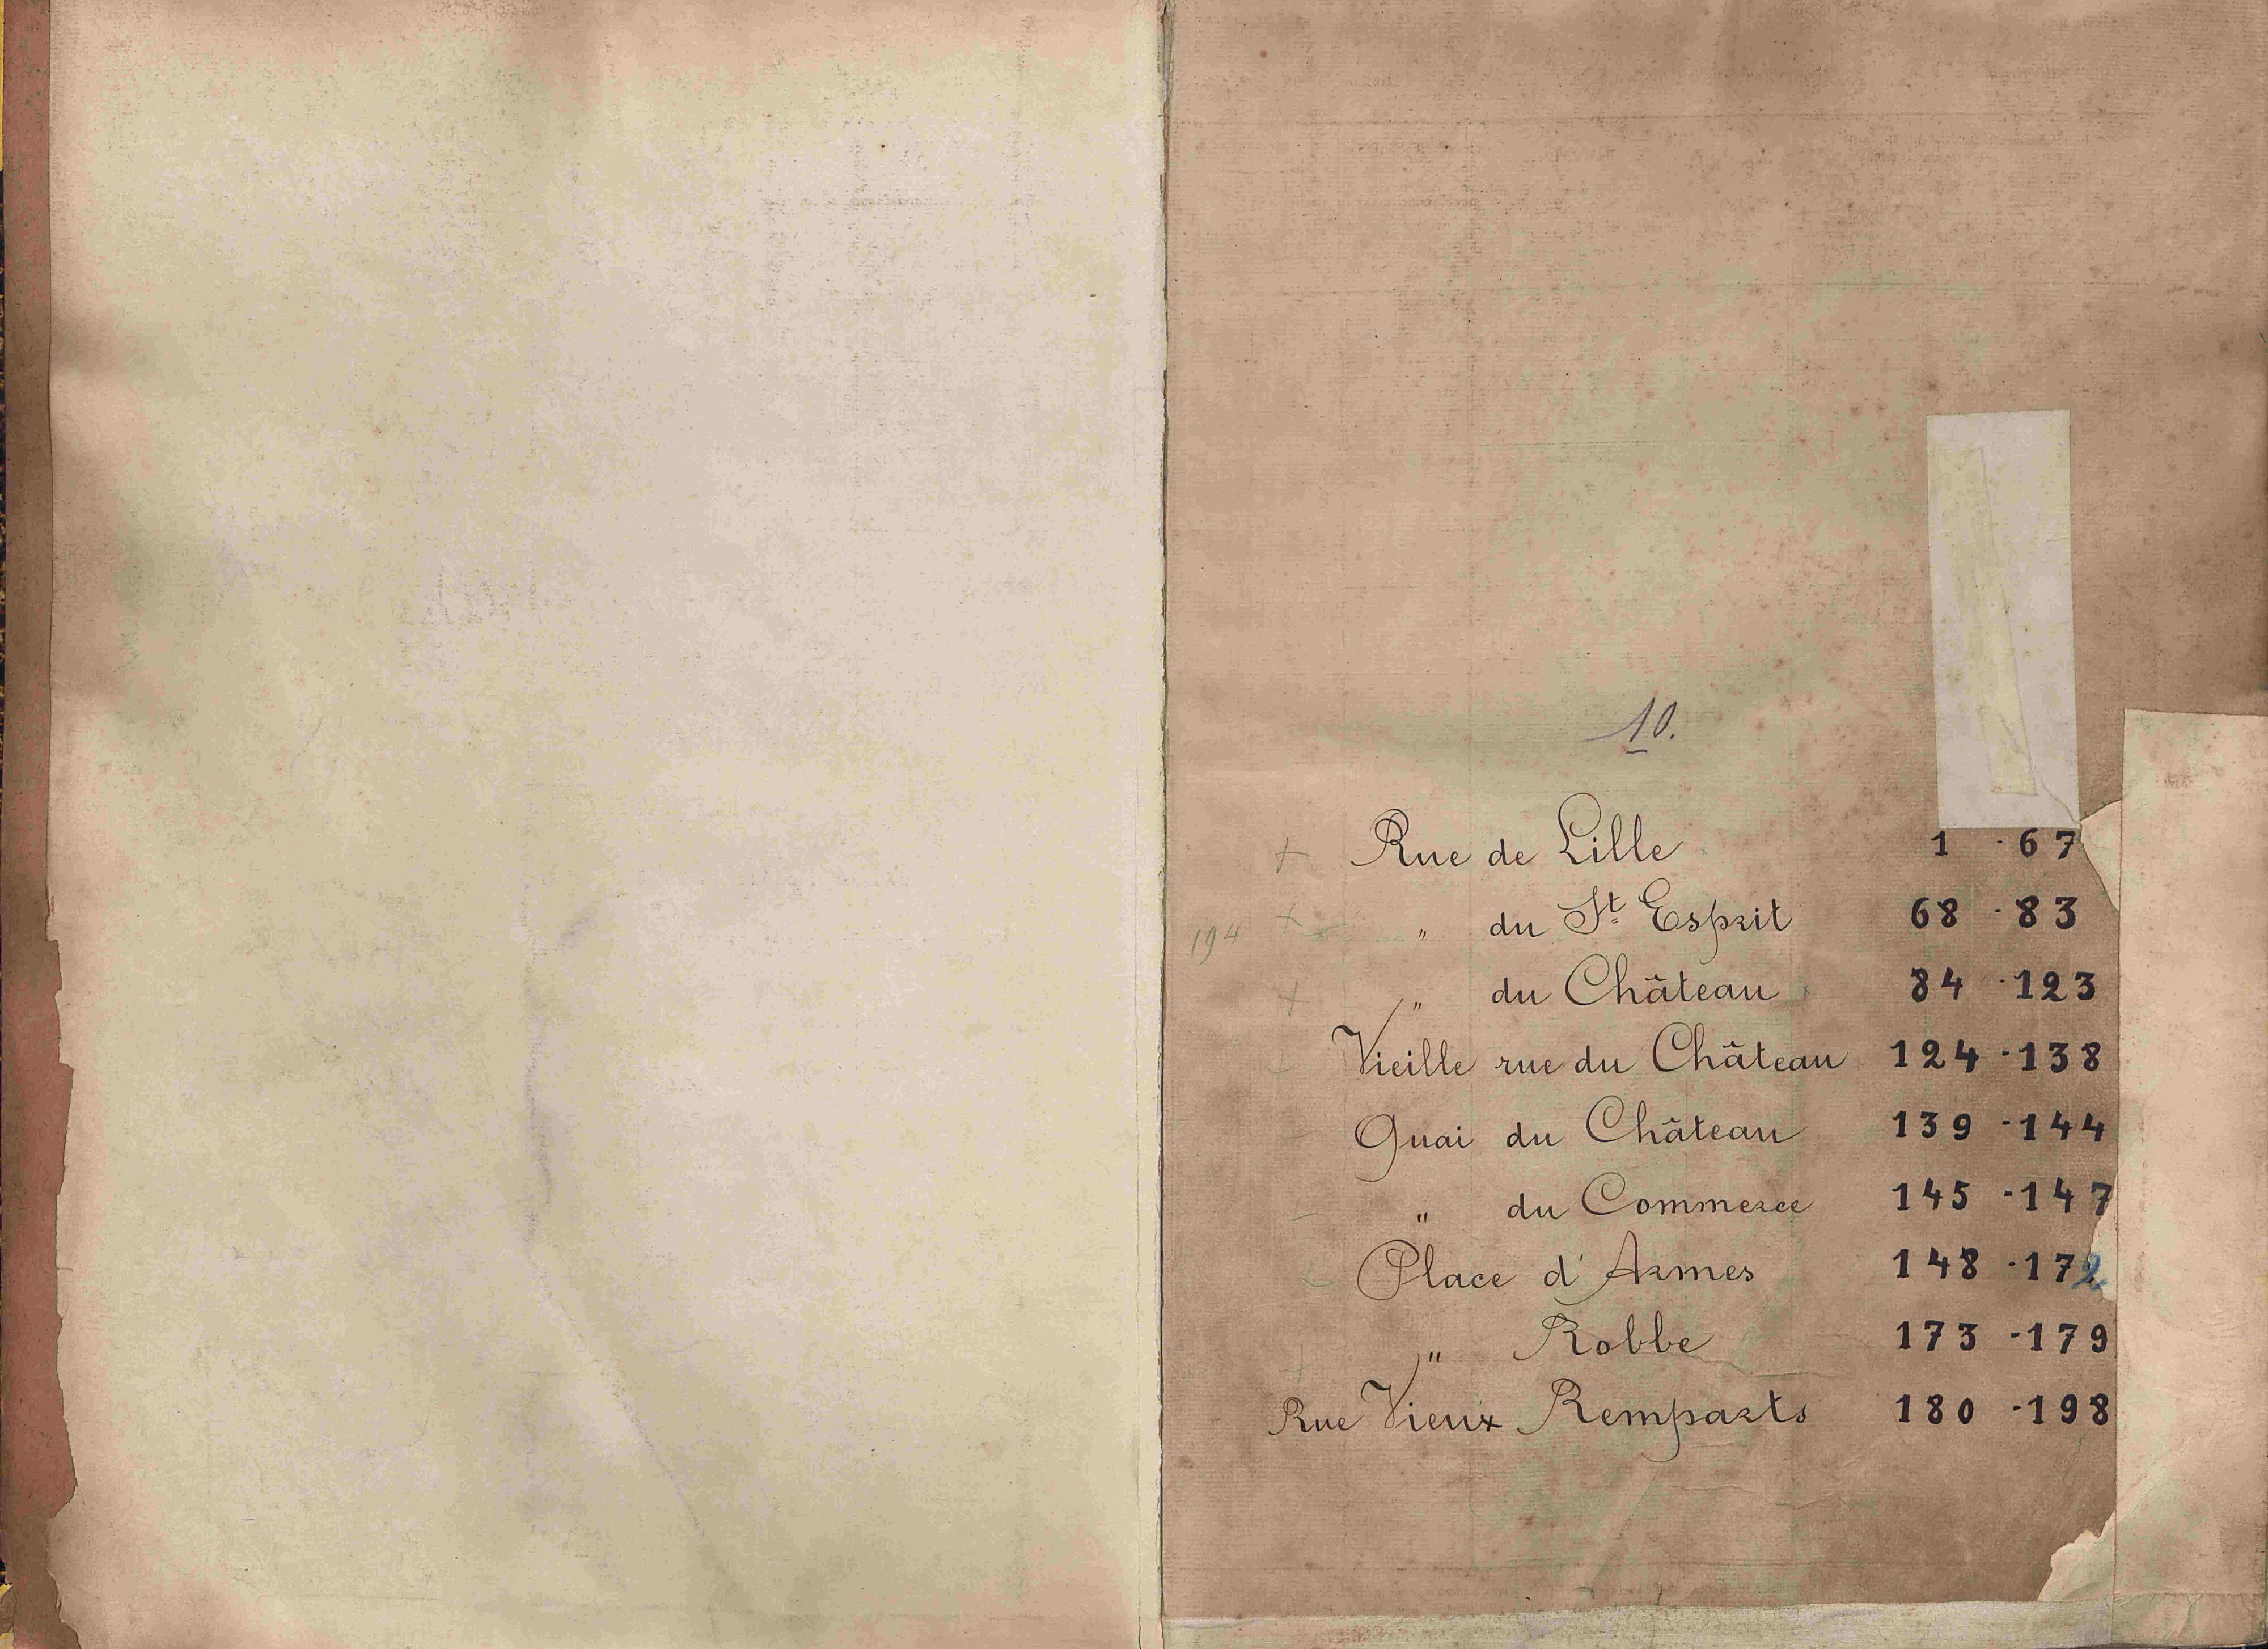 10.
+ Rue de Lille 1 - 67
194 + " du St Esprit 68 - 83
+ " du Château 84 - 123
Vieille rue du Château 124 - 138
Quai du Château 139 - 144
" du Commerce 145 - 147
Place d'Armes 148 - 172
" Robbe 173 - 179
Rue Vieux Remparts 180 - 198